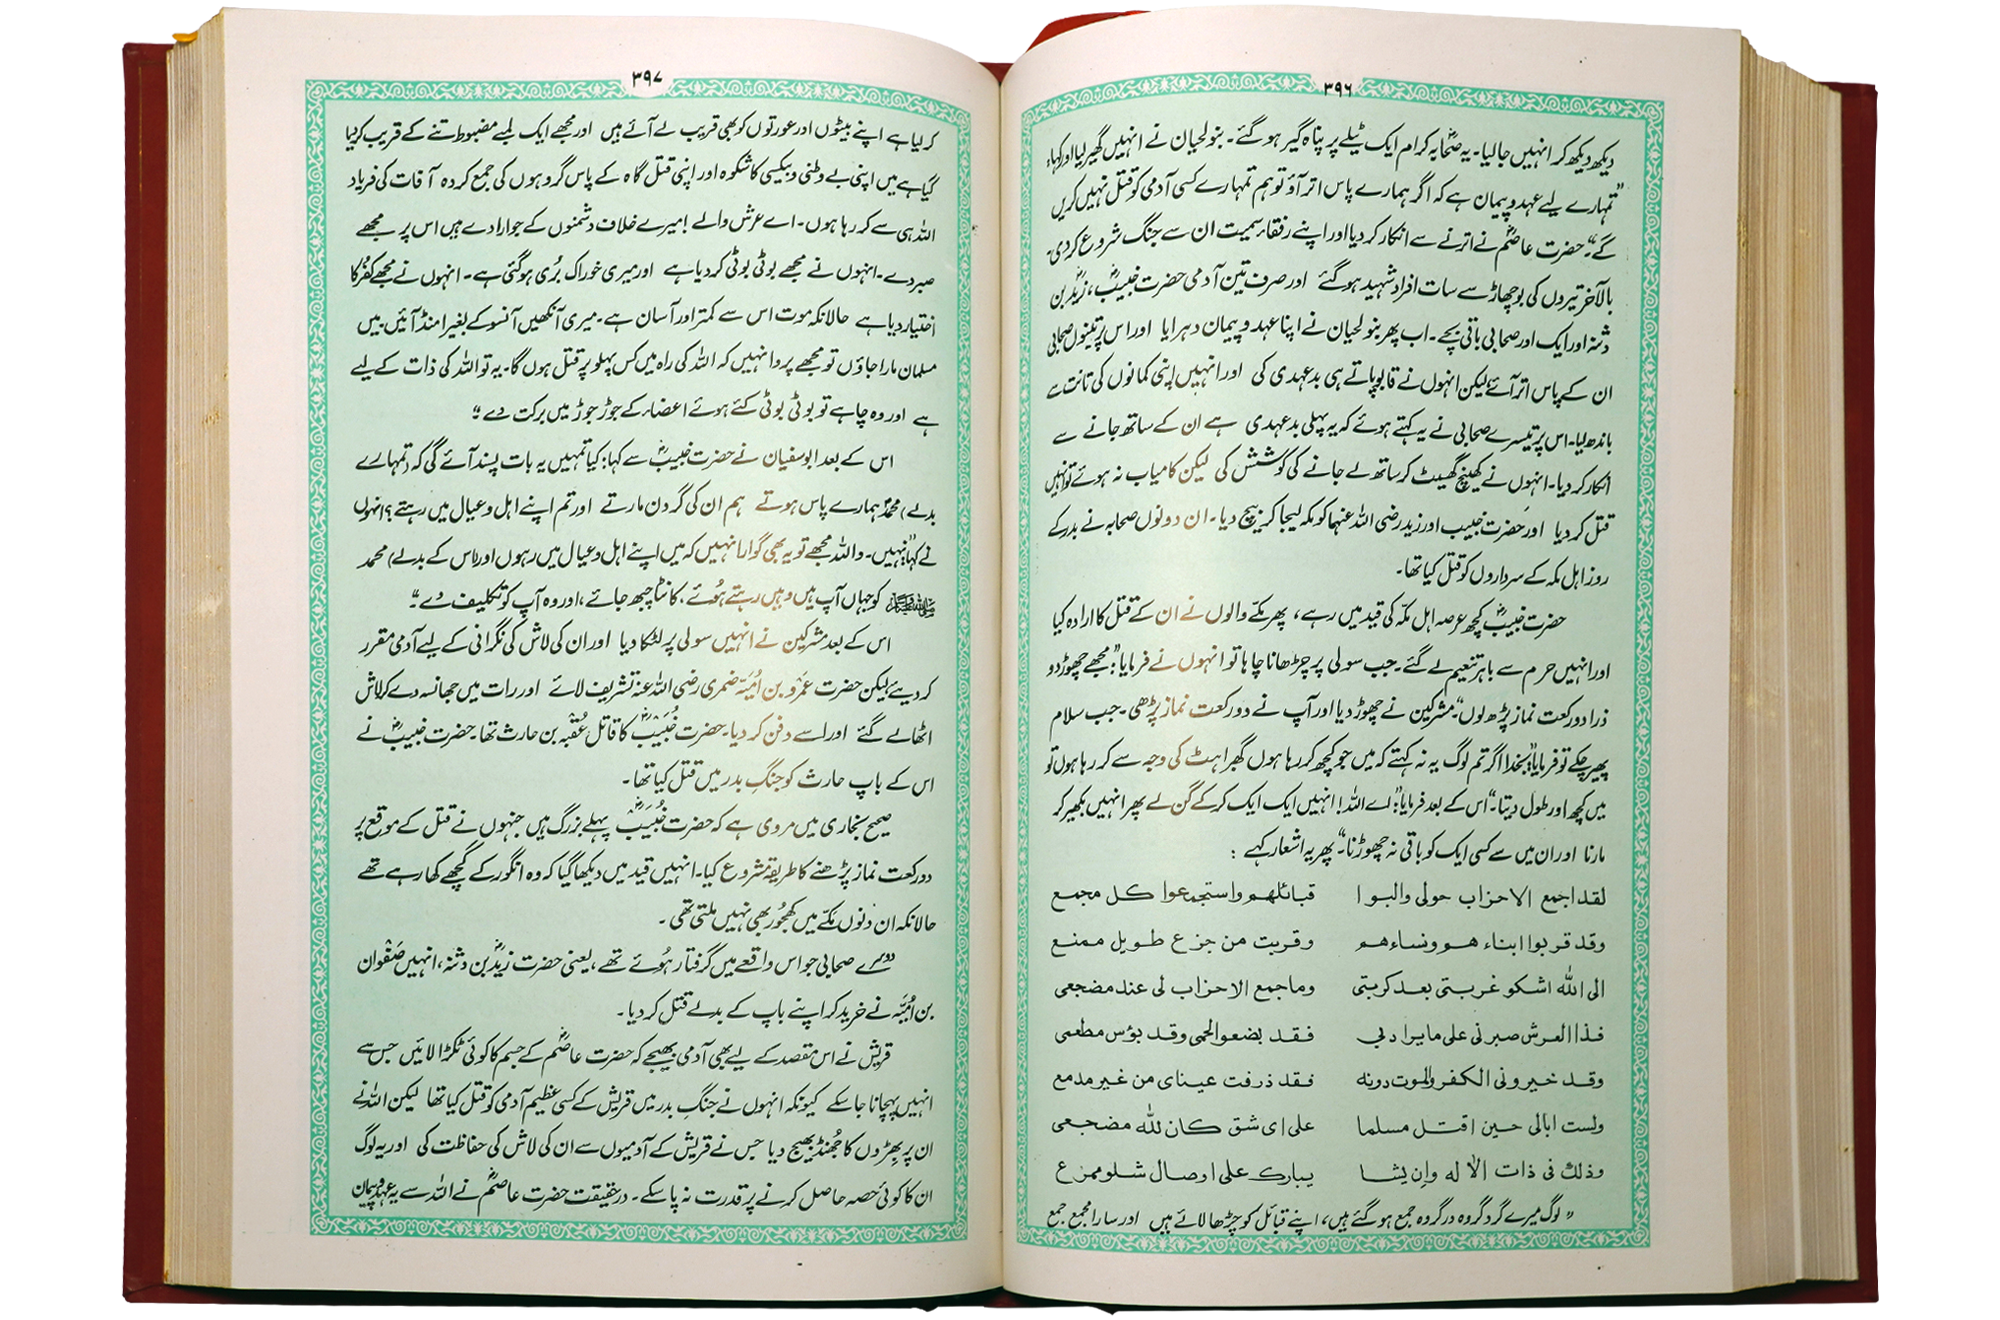 ۳۹۶
دیکھ دیکھ کر انہیں جالیا۔ یہ صحابہ کرام ایک ٹیلے پر پناہ گیر ہو گئے۔ بنو لحیان نے انہیں گھیر لیا اور کہا؛
”تمہارے لیے عہد و پیمان ہے کہ اگر ہمارے پاس اتر آؤ تو ہم تمہارے کسی آدمی کو قتل نہیں کریں
گے“۔ حضرت عاصمؓ نے اترنے سے انکار کر دیا اور اپنے رفقاء سمیت ان سے جنگ شروع کر دی۔
بالآخر تیروں کی بوچھاڑ سے سات افراد شہید ہو گئے اور صرف تین آدمی حضرت خبیبؓ، زیدؓ بن
دثنہ اور ایک اور صحابی باقی بچے۔ اب پھر بنو لحیان نے اپنا عہد و پیمان دہرایا اور اس پر تینوں صحابی
ان کے پاس اتر آئے لیکن انہوں نے قابو پاتے ہی بدعہدی کی اور انہیں اپنی کمانوں کی تانت سے
باندھ لیا۔ اس پر تیسرے صحابی نے یہ کہتے ہوئے کہ یہ پہلی بدعہدی ہے ان کے ساتھ جانے سے
انکار کر دیا۔ انہوں نے کھینچ گھسیٹ کر ساتھ لے جانے کی کوشش کی لیکن کامیاب نہ ہوئے تو انہیں
قتل کر دیا اور حضرت خبیب اور زید رضی اللہ عنہا کو مکہ لیجا کر بیچ دیا۔ ان دونوں صحابہ نے بدر کے
روز اہل مکہ کے سرداروں کو قتل کیا تھا۔
حضرت خبیبؓ کچھ عرصہ اہل مکہ کی قید میں رہے، پھر مکے والوں نے ان کے قتل کا ارادہ کیا
اور انہیں حرم سے باہر تنعیم لے گئے۔ جب سولی پر چڑھانا چاہا تو انہوں نے فرمایا؛ ”مجھے چھوڑ دو
ذرا دو رکعت نماز پڑھ لوں“۔ مشرکین نے چھوڑ دیا اور آپ نے دو رکعت نماز پڑھی۔ جب سلام
پھیر چکے تو فرمایا؛ ”بخدا اگر تم لوگ یہ نہ کہتے کہ میں جو کچھ کر رہا ہوں گھبراہٹ کی وجہ سے کر رہا ہوں تو
میں کچھ اور طول دیتا۔“ اس کے بعد فرمایا؛ ”اے اللہ! انہیں ایک ایک کر کے گن لے پھر انہیں بکھیر کر
مارنا اور ان میں سے کسی ایک کو باقی نہ چھوڑنا“۔ پھر یہ اشعار کہے :
لقد اجمع الاحزاب حولی والبوا قبائلهم واستجمعوا کل مجمع
وقد قربوا ابناءهم ونساءهم وقربت من جزع طویل ممنع
الی اللہ اشکو غربتی بعد کربتی وما جمع الاحزاب لی عند مضجعی
فذا العرش صبرنی علی ما یراد بی فقد بضعوا لحمی وقد بؤس مطعمی
وقد خیرونی الکفر والموت دونه فقد ذرفت عینای من غیر مدمع
ولست ابالی حین اقتل مسلما علی ای شق کان للہ مضجعی
وذلک فی ذات الالہ وان یشا یبارک علی اوصال شلو ممزع
”لوگ میرے گرد گروہ در گروہ جمع ہو گئے ہیں، اپنے قبائل کو چڑھا لائے ہیں اور سارا مجمع جمع
۳۹۷
کر لیا ہے اپنے بیٹوں اور عورتوں کو بھی قریب لے آئے ہیں اور مجھے ایک لمبے مضبوط تنے کے قریب کر لیا
گیا ہے میں اپنی بے وطنی و بیکسی کا شکوہ اور اپنی قتل گاہ کے پاس گروہوں کی جمع کردہ آفات کی فریاد
اللہ ہی سے کر رہا ہوں۔ اے عرش والے! میرے خلاف دشمنوں کے جو ارادے ہیں اس پر مجھے
صبر دے۔ انہوں نے مجھے بوٹی بوٹی کر دیا ہے اور میری خوراک بُری ہو گئی ہے۔ انہوں نے مجھے کفر کا
اختیار دیا ہے حالانکہ موت اس سے کمتر اور آسان ہے۔ میری آنکھیں آنسو کے بغیر امنڈ آئیں۔ میں
مسلمان مارا جاؤں تو مجھے پروا نہیں کہ اللہ کی راہ میں کس پہلو پر قتل ہوں گا۔ یہ تو اللہ کی ذات کے لیے
ہے اور وہ چاہے تو بوٹی بوٹی کئے ہوئے اعضاء کے جوڑ جوڑ میں برکت دے“۔
اس کے بعد ابو سفیان نے حضرت خبیبؓ سے کہا؛ کیا تمہیں یہ بات پسند آئے گی کہ (تمہارے
بدلے) محمدؐ ہمارے پاس ہوتے ہم ان کی گردن مارتے اور تم اپنے اہل و عیال میں رہتے؟ انہوں
نے کہا؛ ”نہیں۔ واللہ مجھے تو یہ بھی گوارا نہیں کہ میں اپنے اہل و عیال میں رہوں اور (اس کے بدلے) محمد
ﷺ کو جہاں آپ ہیں وہیں رہتے ہوئے، کانٹا چبھ جائے، اور وہ آپ کو تکلیف دے“۔
اس کے بعد مشرکین نے انہیں سولی پر لٹکا دیا اور ان کی لاش کی نگرانی کے لیے آدمی مقرر
کر دیئے لیکن حضرت عمرو بن امیہ ضمری رضی اللہ عنہ تشریف لائے اور رات میں جھانسہ دے کر لاش
اٹھا لے گئے اور اسے دفن کر دیا۔ حضرت خُبَیبؓ کا قاتل عُقبہ بن حارث تھا۔ حضرت خبیبؓ نے
اس کے باپ حارث کو جنگِ بدر میں قتل کیا تھا۔
صحیح بخاری میں مروی ہے کہ حضرت خُبَیبؓ پہلے بزرگ ہیں جنہوں نے قتل کے موقع پر
دو رکعت نماز پڑھنے کا طریقہ شروع کیا۔ انہیں قید میں دیکھا گیا کہ وہ انگور کے گچھے کھا رہے تھے
حالانکہ ان دنوں مکے میں کھجور بھی نہیں ملتی تھی۔
دوسرے صحابی جو اس واقعے میں گرفتار ہوئے تھے، یعنی حضرت زیدؓ بن دثنہ، انہیں صَفْوان
بن اُمیَّہ نے خرید کر اپنے باپ کے بدلے قتل کر دیا۔
قریش نے اس مقصد کے لیے بھی آدمی بھیجے کہ حضرت عاصمؓ کے جسم کا کوئی ٹکڑا لائیں جس سے
انہیں پہچانا جا سکے کیونکہ انہوں نے جنگِ بدر میں قریش کے کسی عظیم آدمی کو قتل کیا تھا لیکن اللہ نے
ان پر بِھڑوں کا جُھنڈ بھیج دیا جس نے قریش کے آدمیوں سے ان کی لاش کی حفاظت کی اور یہ لوگ
ان کا کوئی حصہ حاصل کرنے پر قدرت نہ پا سکے۔ درحقیقت حضرت عاصمؓ نے اللہ سے یہ عہد و پیمان